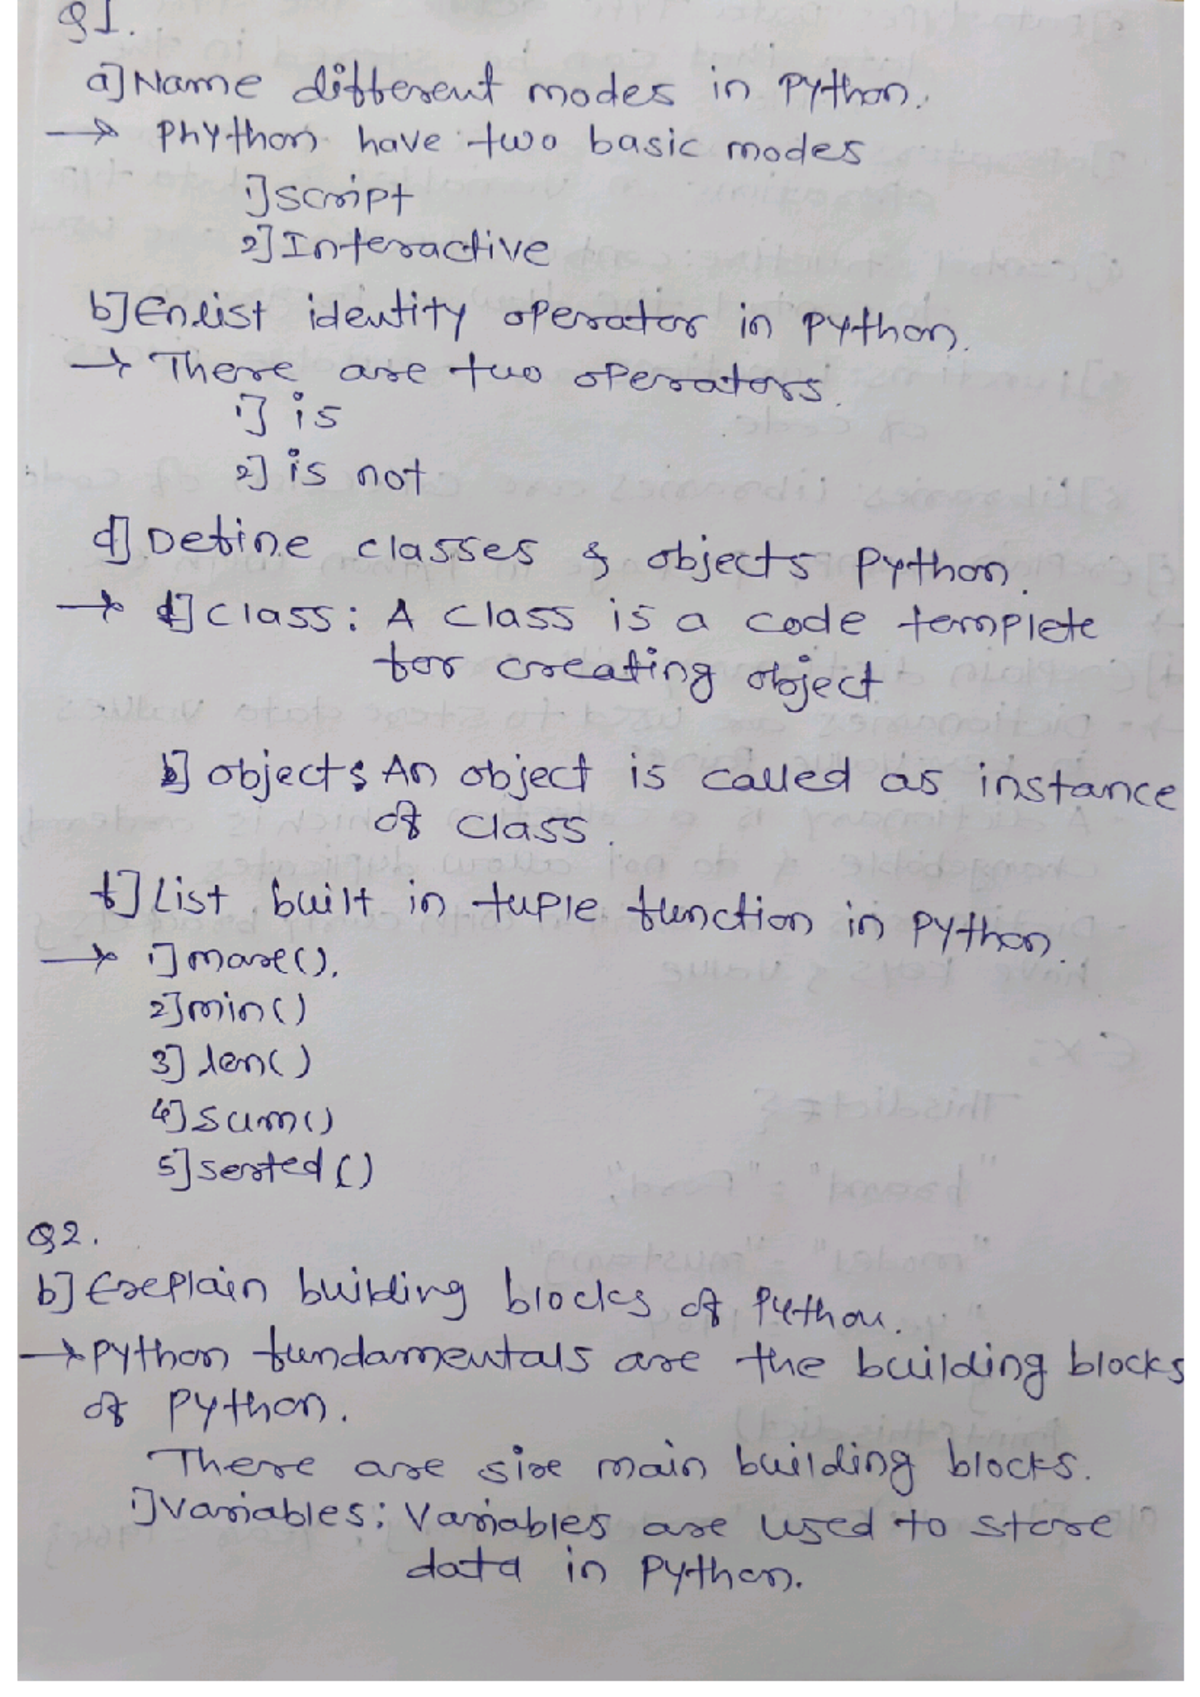 Q1.
a] Name different modes in Python.
→ Phython have two basic modes
1] script
2] Interactive
b] Enlist identity operator in python.
→ There are two operators.
1] is
2] is not
d] Define classes & objects Python.
→ 1] class: A class is a code templete
for creating object
2] object: An object is called as instance
of class.
f] List built in tuple function in Python.
→ 1] max().
2] min()
3] len()
4] sum()
5] sorted()
Q2.
b] Explain building blocks of Python.
→ Python fundamentals are the building blocks
of Python.
There are six main building blocks.
1] Variables: Variables are used to store
data in Python.